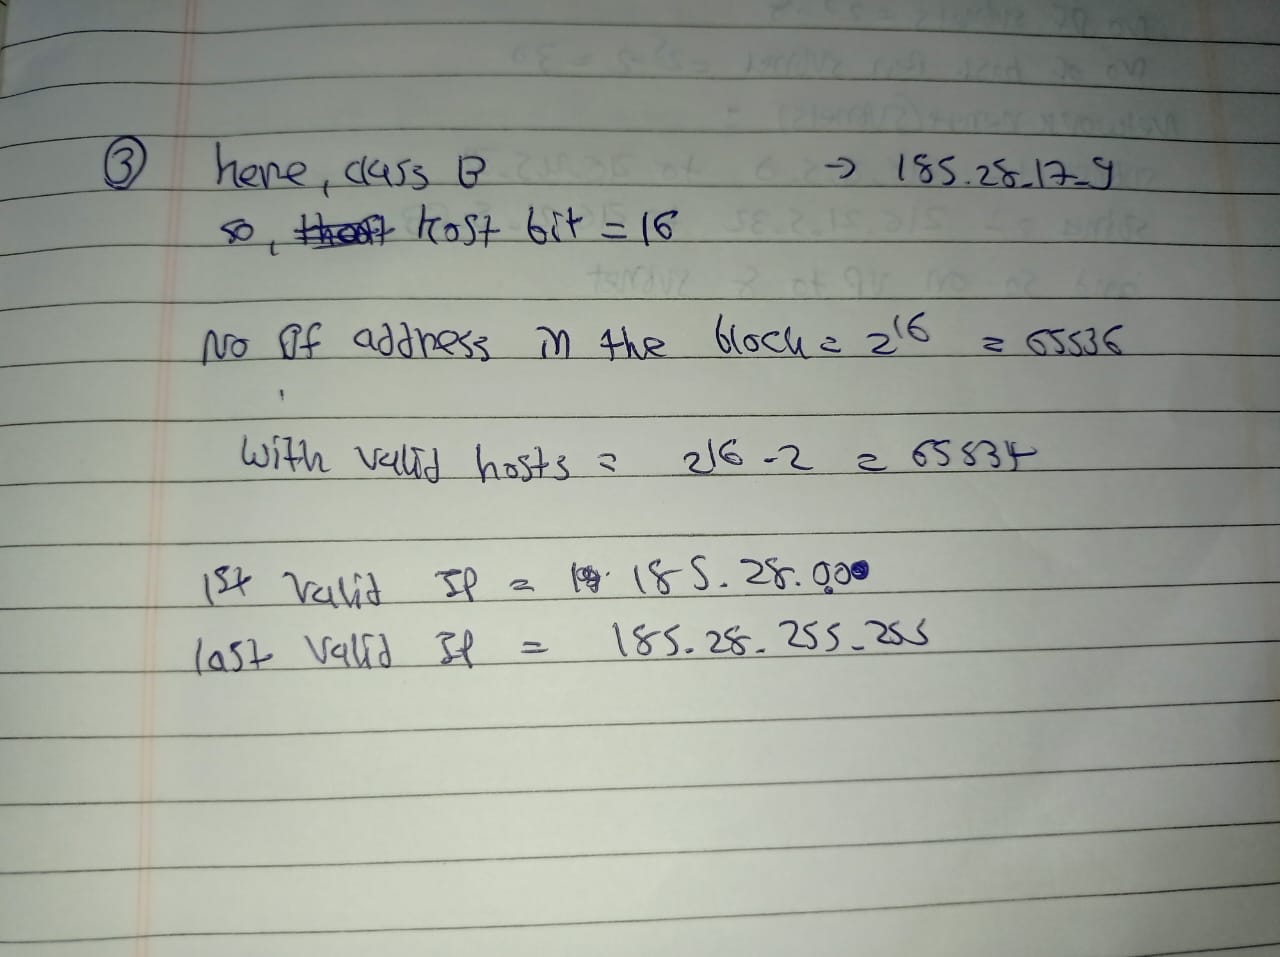 ③ here, class B → 185.28.17.9
so, host bit = 16
No of address in the block = 2^16 = 65536
With valid hosts = 216 - 2 = 65534
1st valid IP = 185.28.0.0
last valid IP = 185.28.255.255